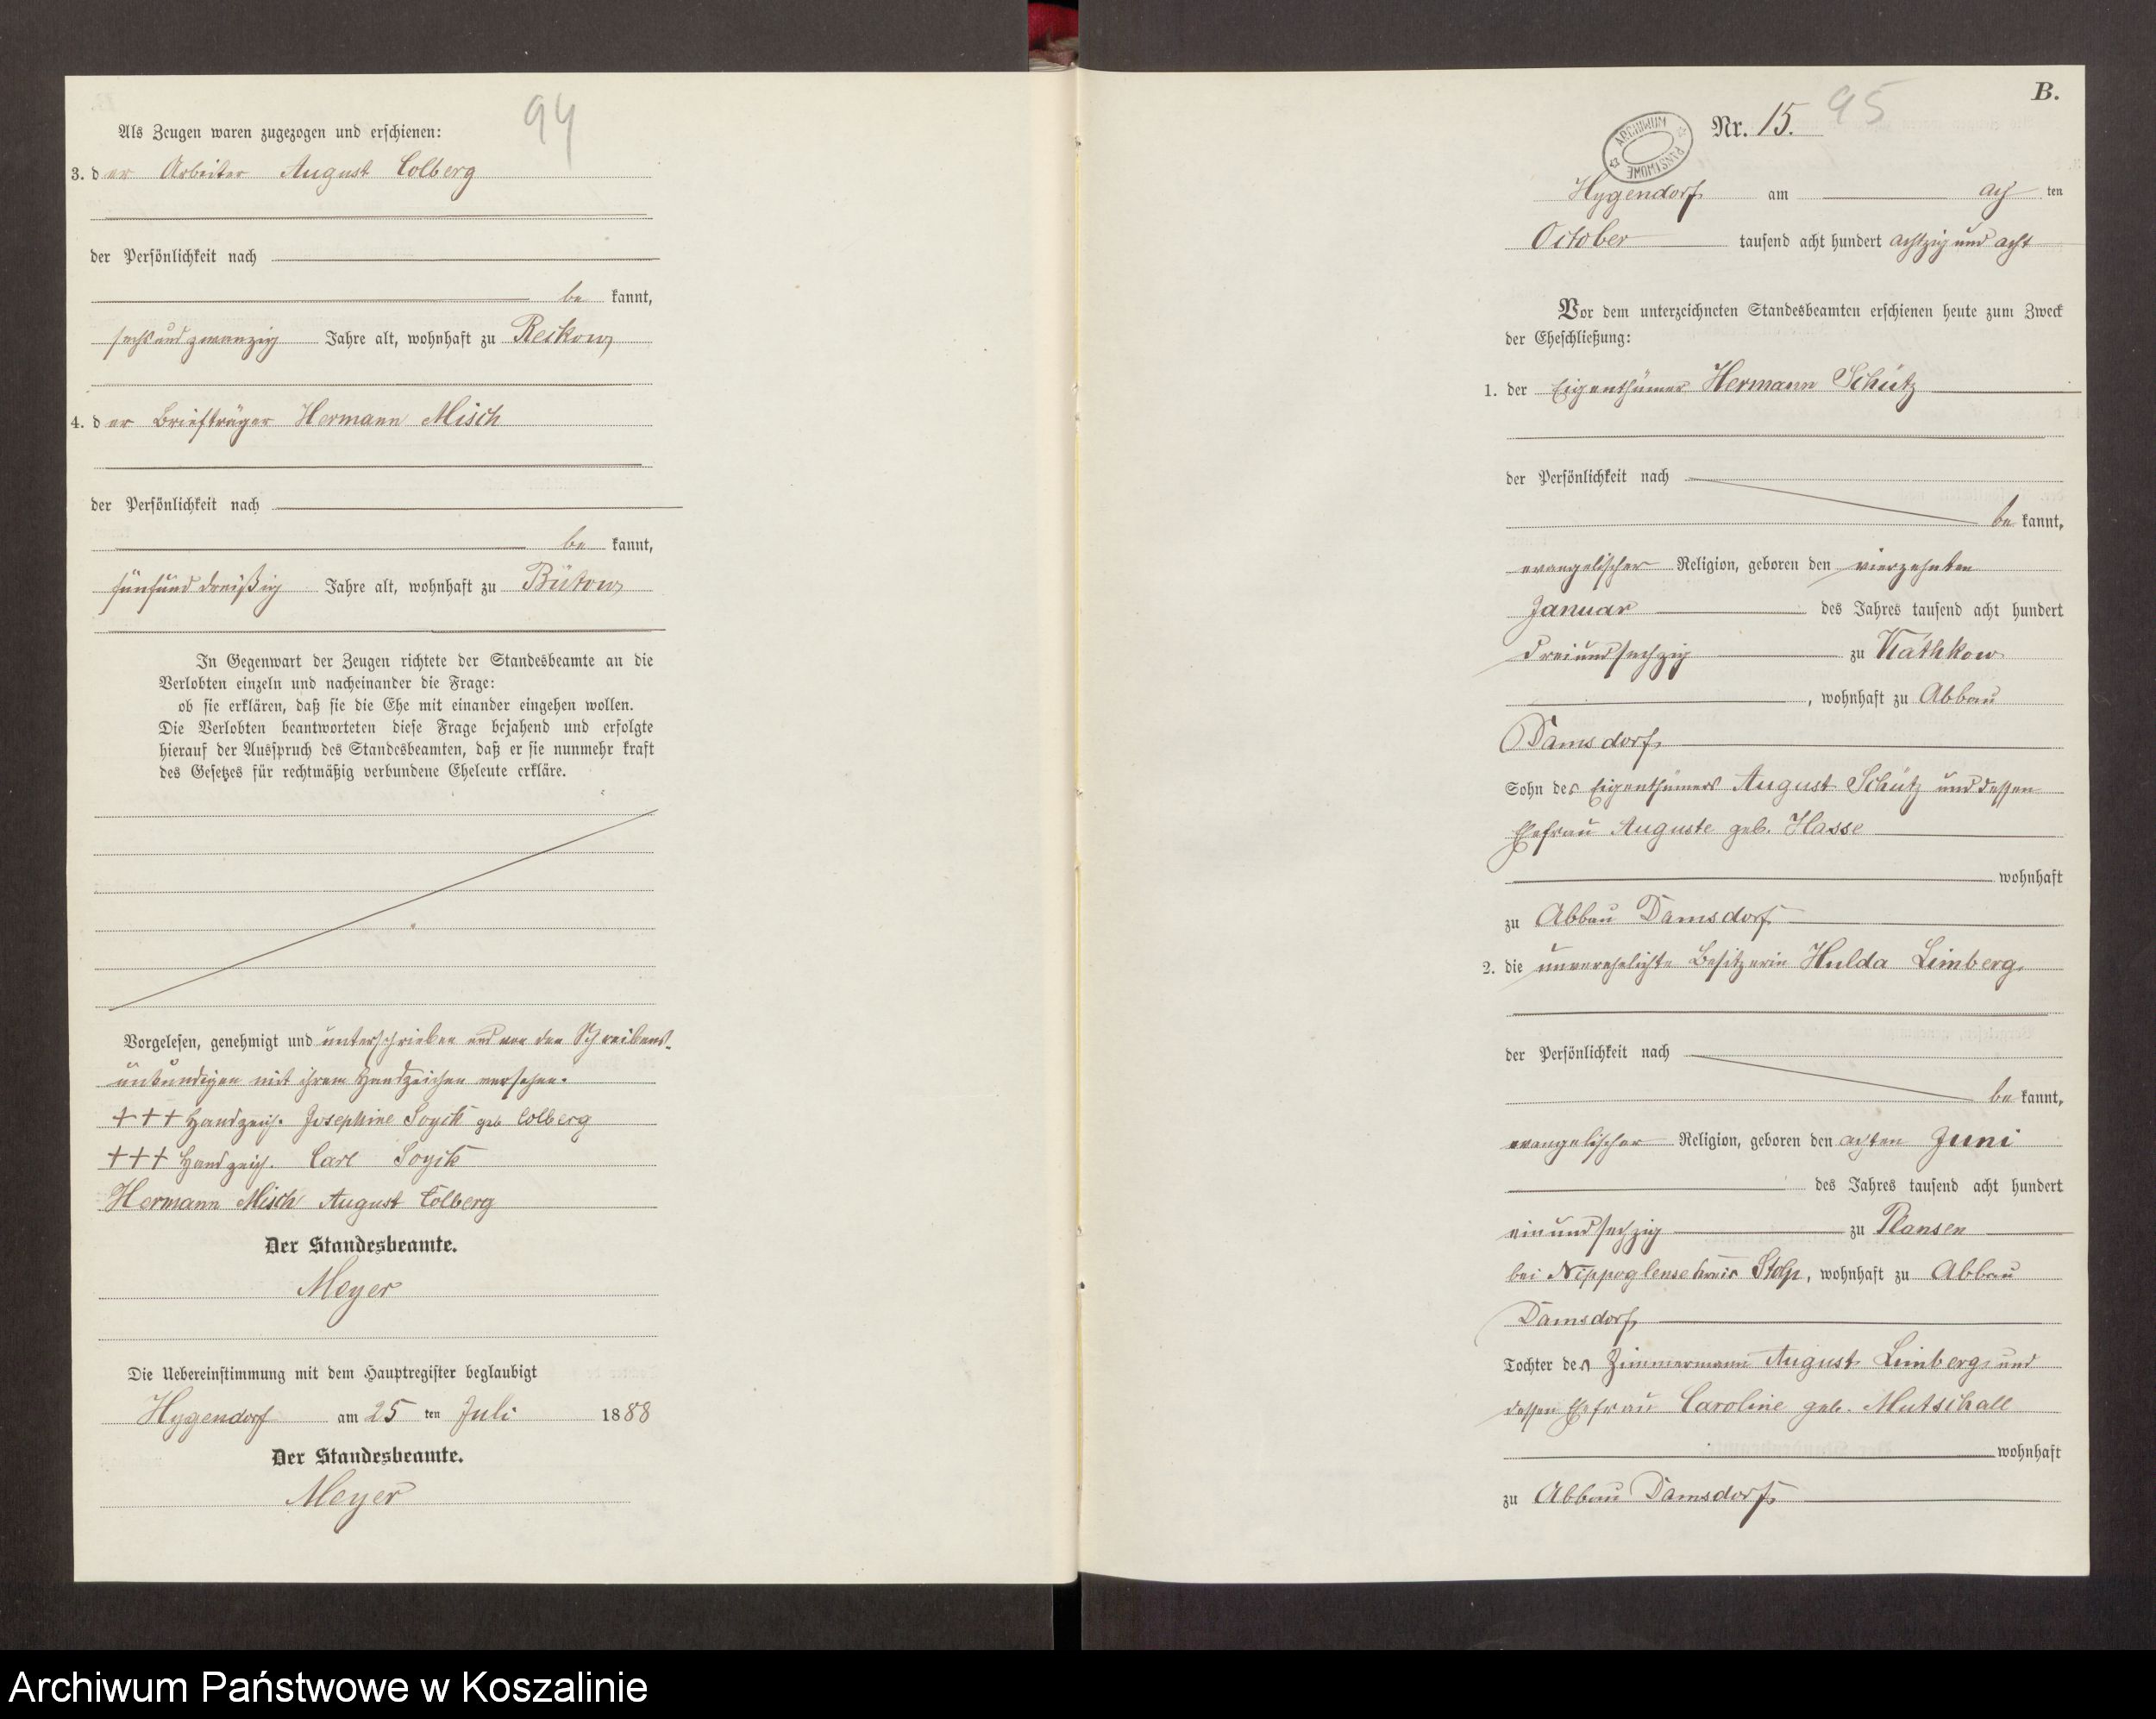 94
Als Zeugen waren zugezogen und erschienen:
3. der Arbeiter August Colberg
der Persönlichkeit nach
be kannt,
sechsundzwanzig Jahre alt, wohnhaft zu Reckow
4. der Briefträger Hermann Misch
der Persönlichkeit nach
be kannt,
fünfunddreißig Jahre alt, wohnhaft zu Bütow
In Gegenwart der Zeugen richtete der Standesbeamte an die
Verlobten einzeln und nacheinander die Frage:
ob sie erklären, daß sie die Ehe mit einander eingehen wollen.
Die Verlobten beantworteten diese Frage bejahend und erfolgte
hierauf der Ausspruch des Standesbeamten, daß er sie nunmehr kraft
des Gesetzes für rechtmäßig verbundene Eheleute erkläre.
Vorgelesen, genehmigt und unterschrieben und von den Schreibens-
unkundigen mit ihrem Handzeichen versehen.
+++ Handzeich. Josephine Soyck geb Colberg
+++ Handzeich. Carl Soyck
Hermann Misch August Colberg
Der Standesbeamte.
Meyer
Die Uebereinstimmung mit dem Hauptregister beglaubigt
Hygendorf am 25 ten Juli 1888
Der Standesbeamte.
Meyer
B.
Nr. 15. 95
ARCHIWUM PAŃSTWOWE
Hygendorf am ach ten
October tausend acht hundert achtzig und acht
Vor dem unterzeichneten Standesbeamten erschienen heute zum Zweck
der Eheschließung:
1. der Eigenthümer Hermann Schütz
der Persönlichkeit nach
be kannt,
evangelischer Religion, geboren den vierzehnten
Januar des Jahres tausend acht hundert
dreiundsechzig zu Kathkow
, wohnhaft zu Abbau
Damsdorf
Sohn des Eigenthümers August Schütz und dessen
Ehefrau Auguste geb. Hasse
wohnhaft
zu Abbau Damsdorf
2. die unverehelichte Besitzerin Hulda Limberg
der Persönlichkeit nach
be kannt,
evangelischer Religion, geboren den achten Juni
des Jahres tausend acht hundert
einundsechzig zu Plansen
bei Nippoglense Kreis Stolp, wohnhaft zu Abbau
Damsdorf
Tochter des Zimmermann August Limberg und
dessen Ehefrau Caroline geb. Mutschall
wohnhaft
zu Abbau Damsdorf
Archiwum Państwowe w Koszalinie